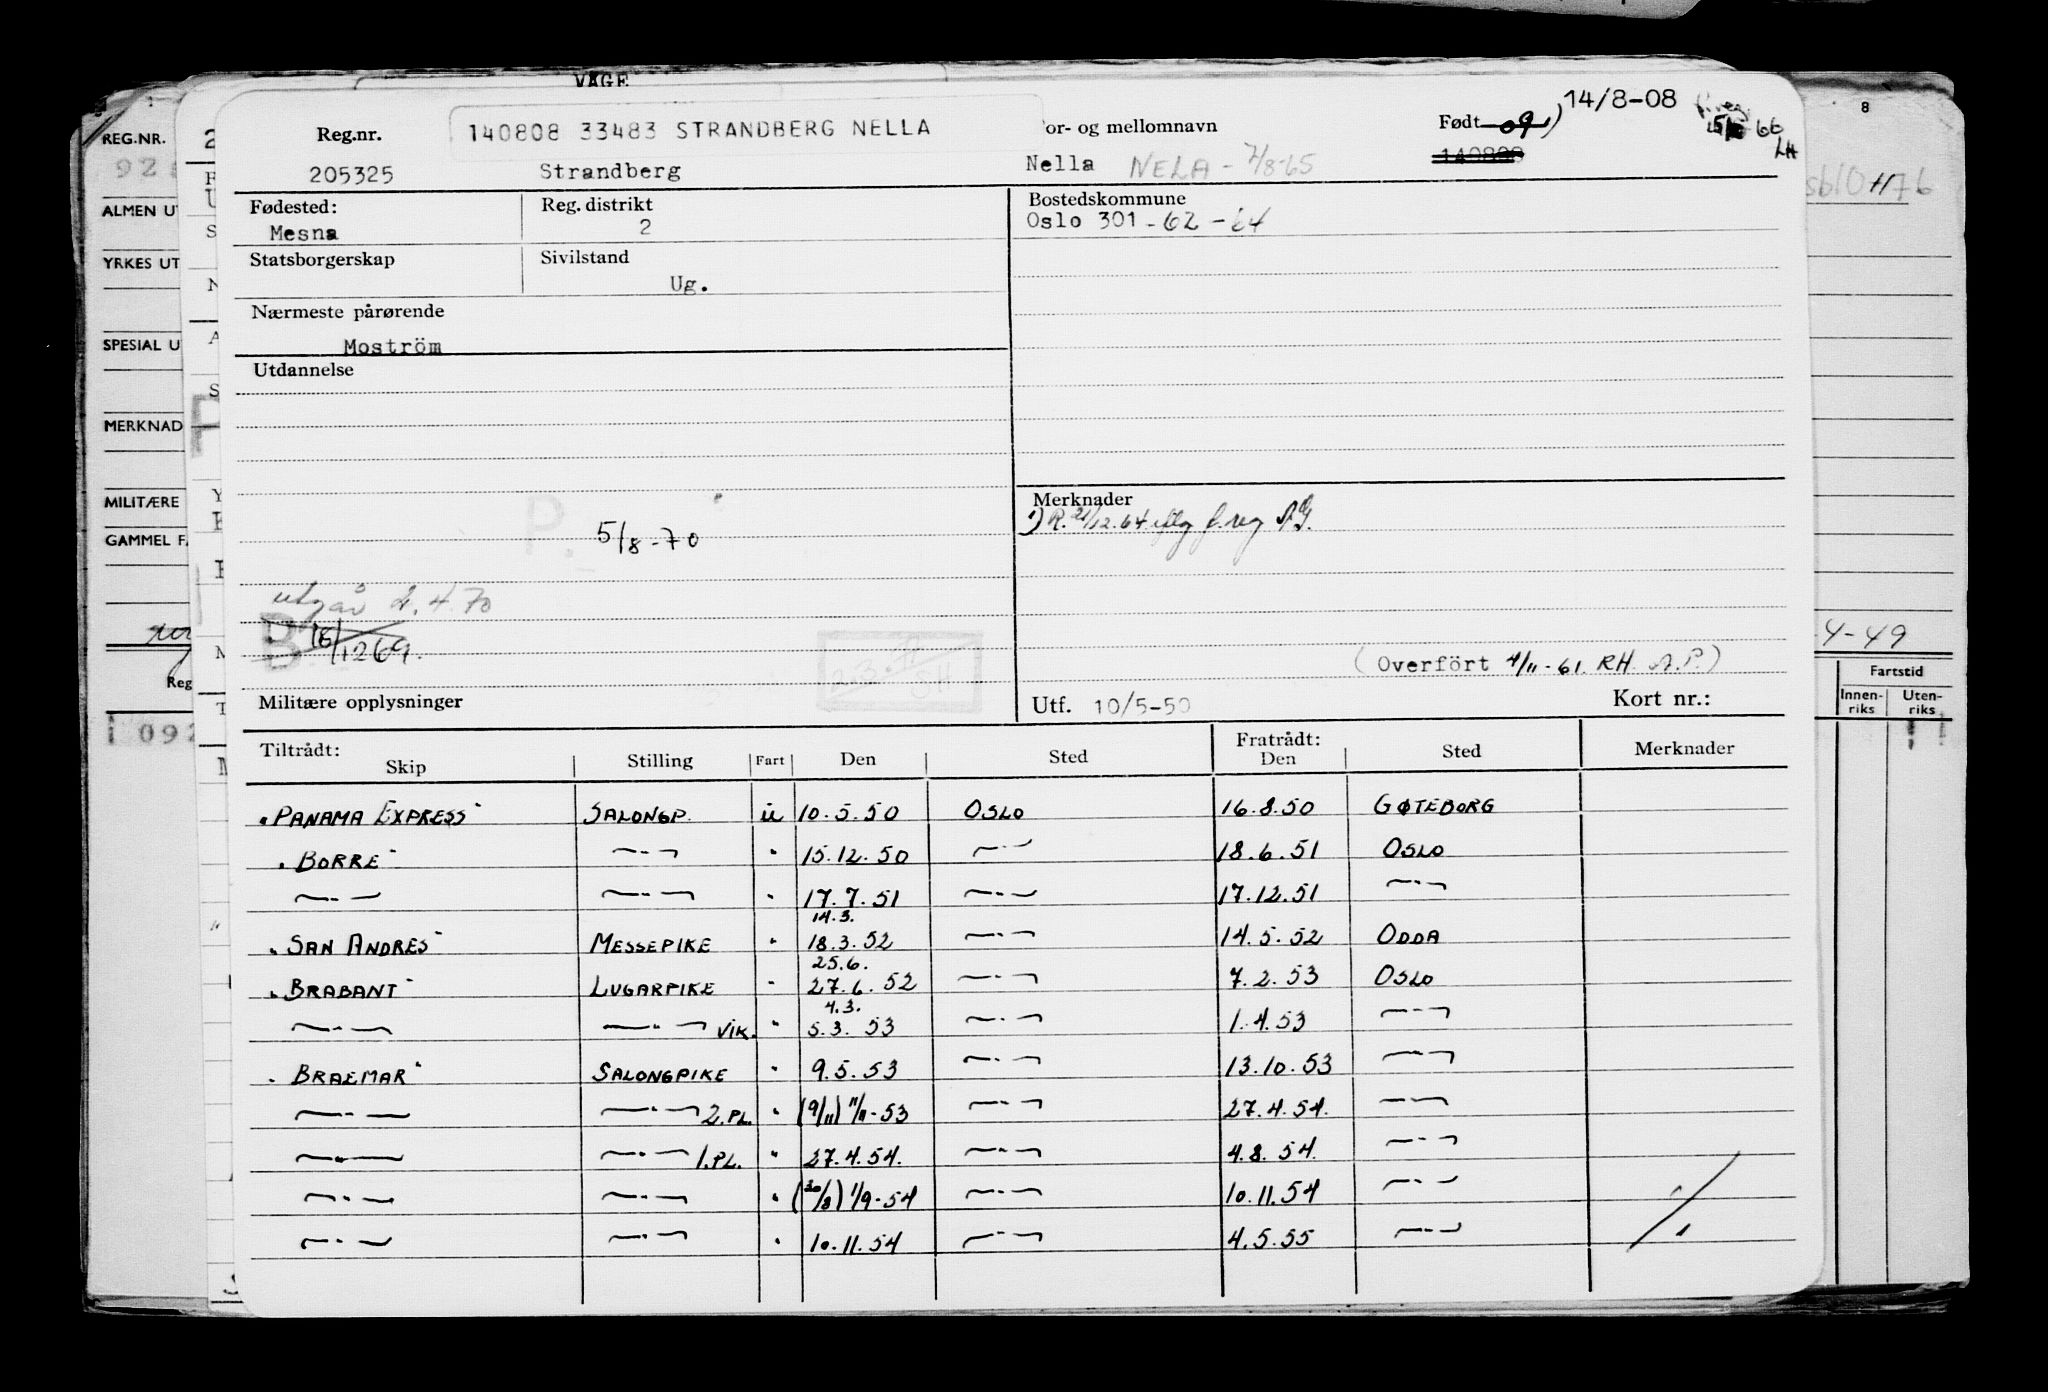 VÅGE
8
REG.NR.
Reg.nr.
140808 33483 STRANDBERG NELLA
or- og mellomnavn
Født 09 1) 14/8-08
66
LH
205325 Strandberg Nella NELA - 7/8-65 140809
ALMEN UT
Fødested: Reg. distrikt Bostedskommune
Mesna 2 Oslo 301 - 62 - 64
YRKES UT
Statsborgerskap Sivilstand
Ug.
Nærmeste pårørende
SPESIAL U
Moström
Utdannelse
MERKNAD
MILITÆRE
Merknader
1) R. 21/12.64 iflg f. reg
GAMMEL F
P. 5/8-70
utgår 2.4.70
B 16/12 69.
2.3. SH
(Overfört 4/11-61. RH. A.P.)
-4-49
Militære opplysninger Utf. 10/5-50 Kort nr.:
Fartstid
Innen-riks Uten-riks
Reg
Tiltrådt: Skip Stilling Fart Den Sted Fratrådt: Den Sted Merknader
"PANAMA EXPRESS" SALONGP. u 10.5.50 OSLO 16.8.50 GØTEBORG
"BORRE" —"— " 15.12.50 —"— 18.6.51 OSLO
—"— —"— " 17.7.51 —"— 17.12.51 —"—
14.3.
"SAN ANDRES" MESSEPIKE " 18.3.52 —"— 14.5.52 ODDA
25.6.
"BRABANT" LUGARPIKE " 27.6.52 —"— 7.2.53 OSLO
4.3.
—"— —"— VIK. " 5.3.53 —"— 1.4.53 —"—
"BRAEMAR" SALONGPIKE " 9.5.53 —"— 13.10.53 —"—
—"— —"— 2.PL. " (9/11) 11/11-53 —"— 27.4.54. —"—
—"— —"— 1.PL. " 27.4.54. —"— 4.8.54. —"—
—"— —"— " (30/8) 1/9-54 —"— 10.11.54 —"—
—"— —"— " 10.11.54 —"— 4.5.55 —"—